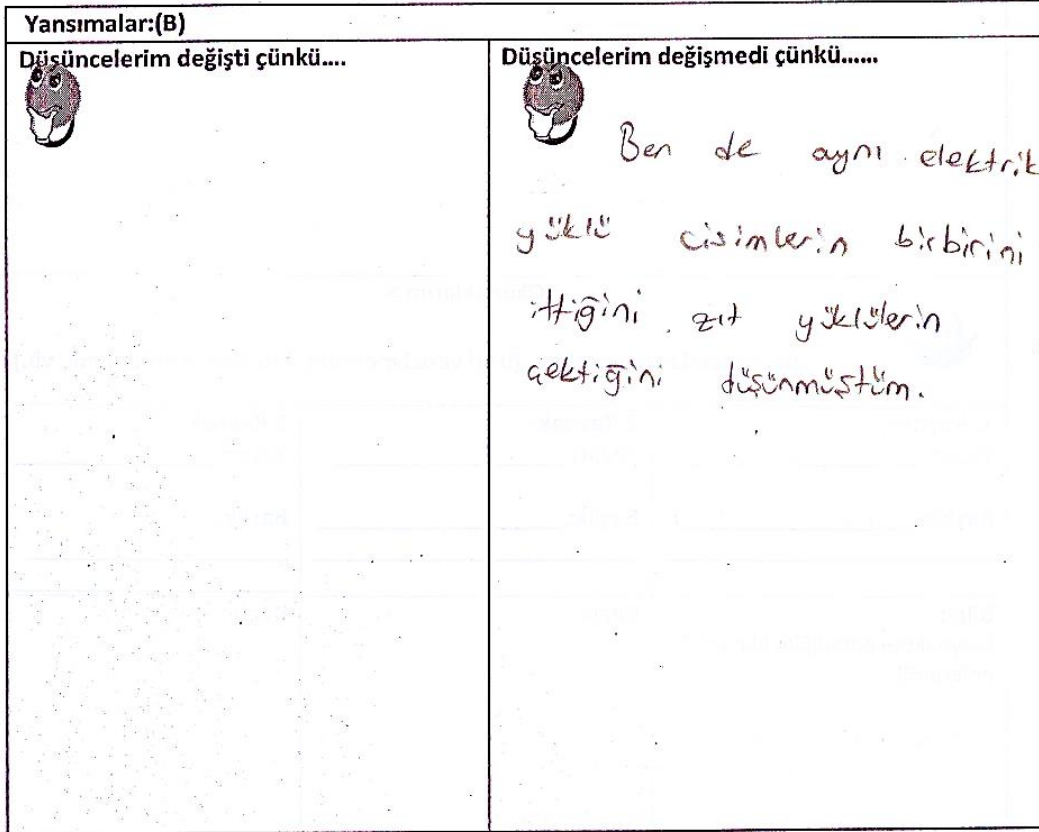 Yansımalar:(B)
Düşüncelerim değişti çünkü....
Düşüncelerim değişmedi çünkü......
Ben de aynı elektrik
yüklü cisimlerin birbirini
ittiğini zıt yüklülerin
çektiğini düşünmüştüm.